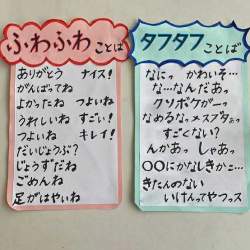 ふわふわことば
ありがとう ナイス!
がんばってね
よかったね つよいね
うれしいね すごい!
つよいね キレイ!
だいじょうぶ?
じょうずだね
ごめんね
足がはやいね
タフタフことば
なにっ かわいそ…
な…なんだあっ
クソボケがーっ
なめるなっメスブタぁっ
すごくない?
んかあっ しゃあっ
○○にかなしきかこ…
きたんのない
いけんってやつっス